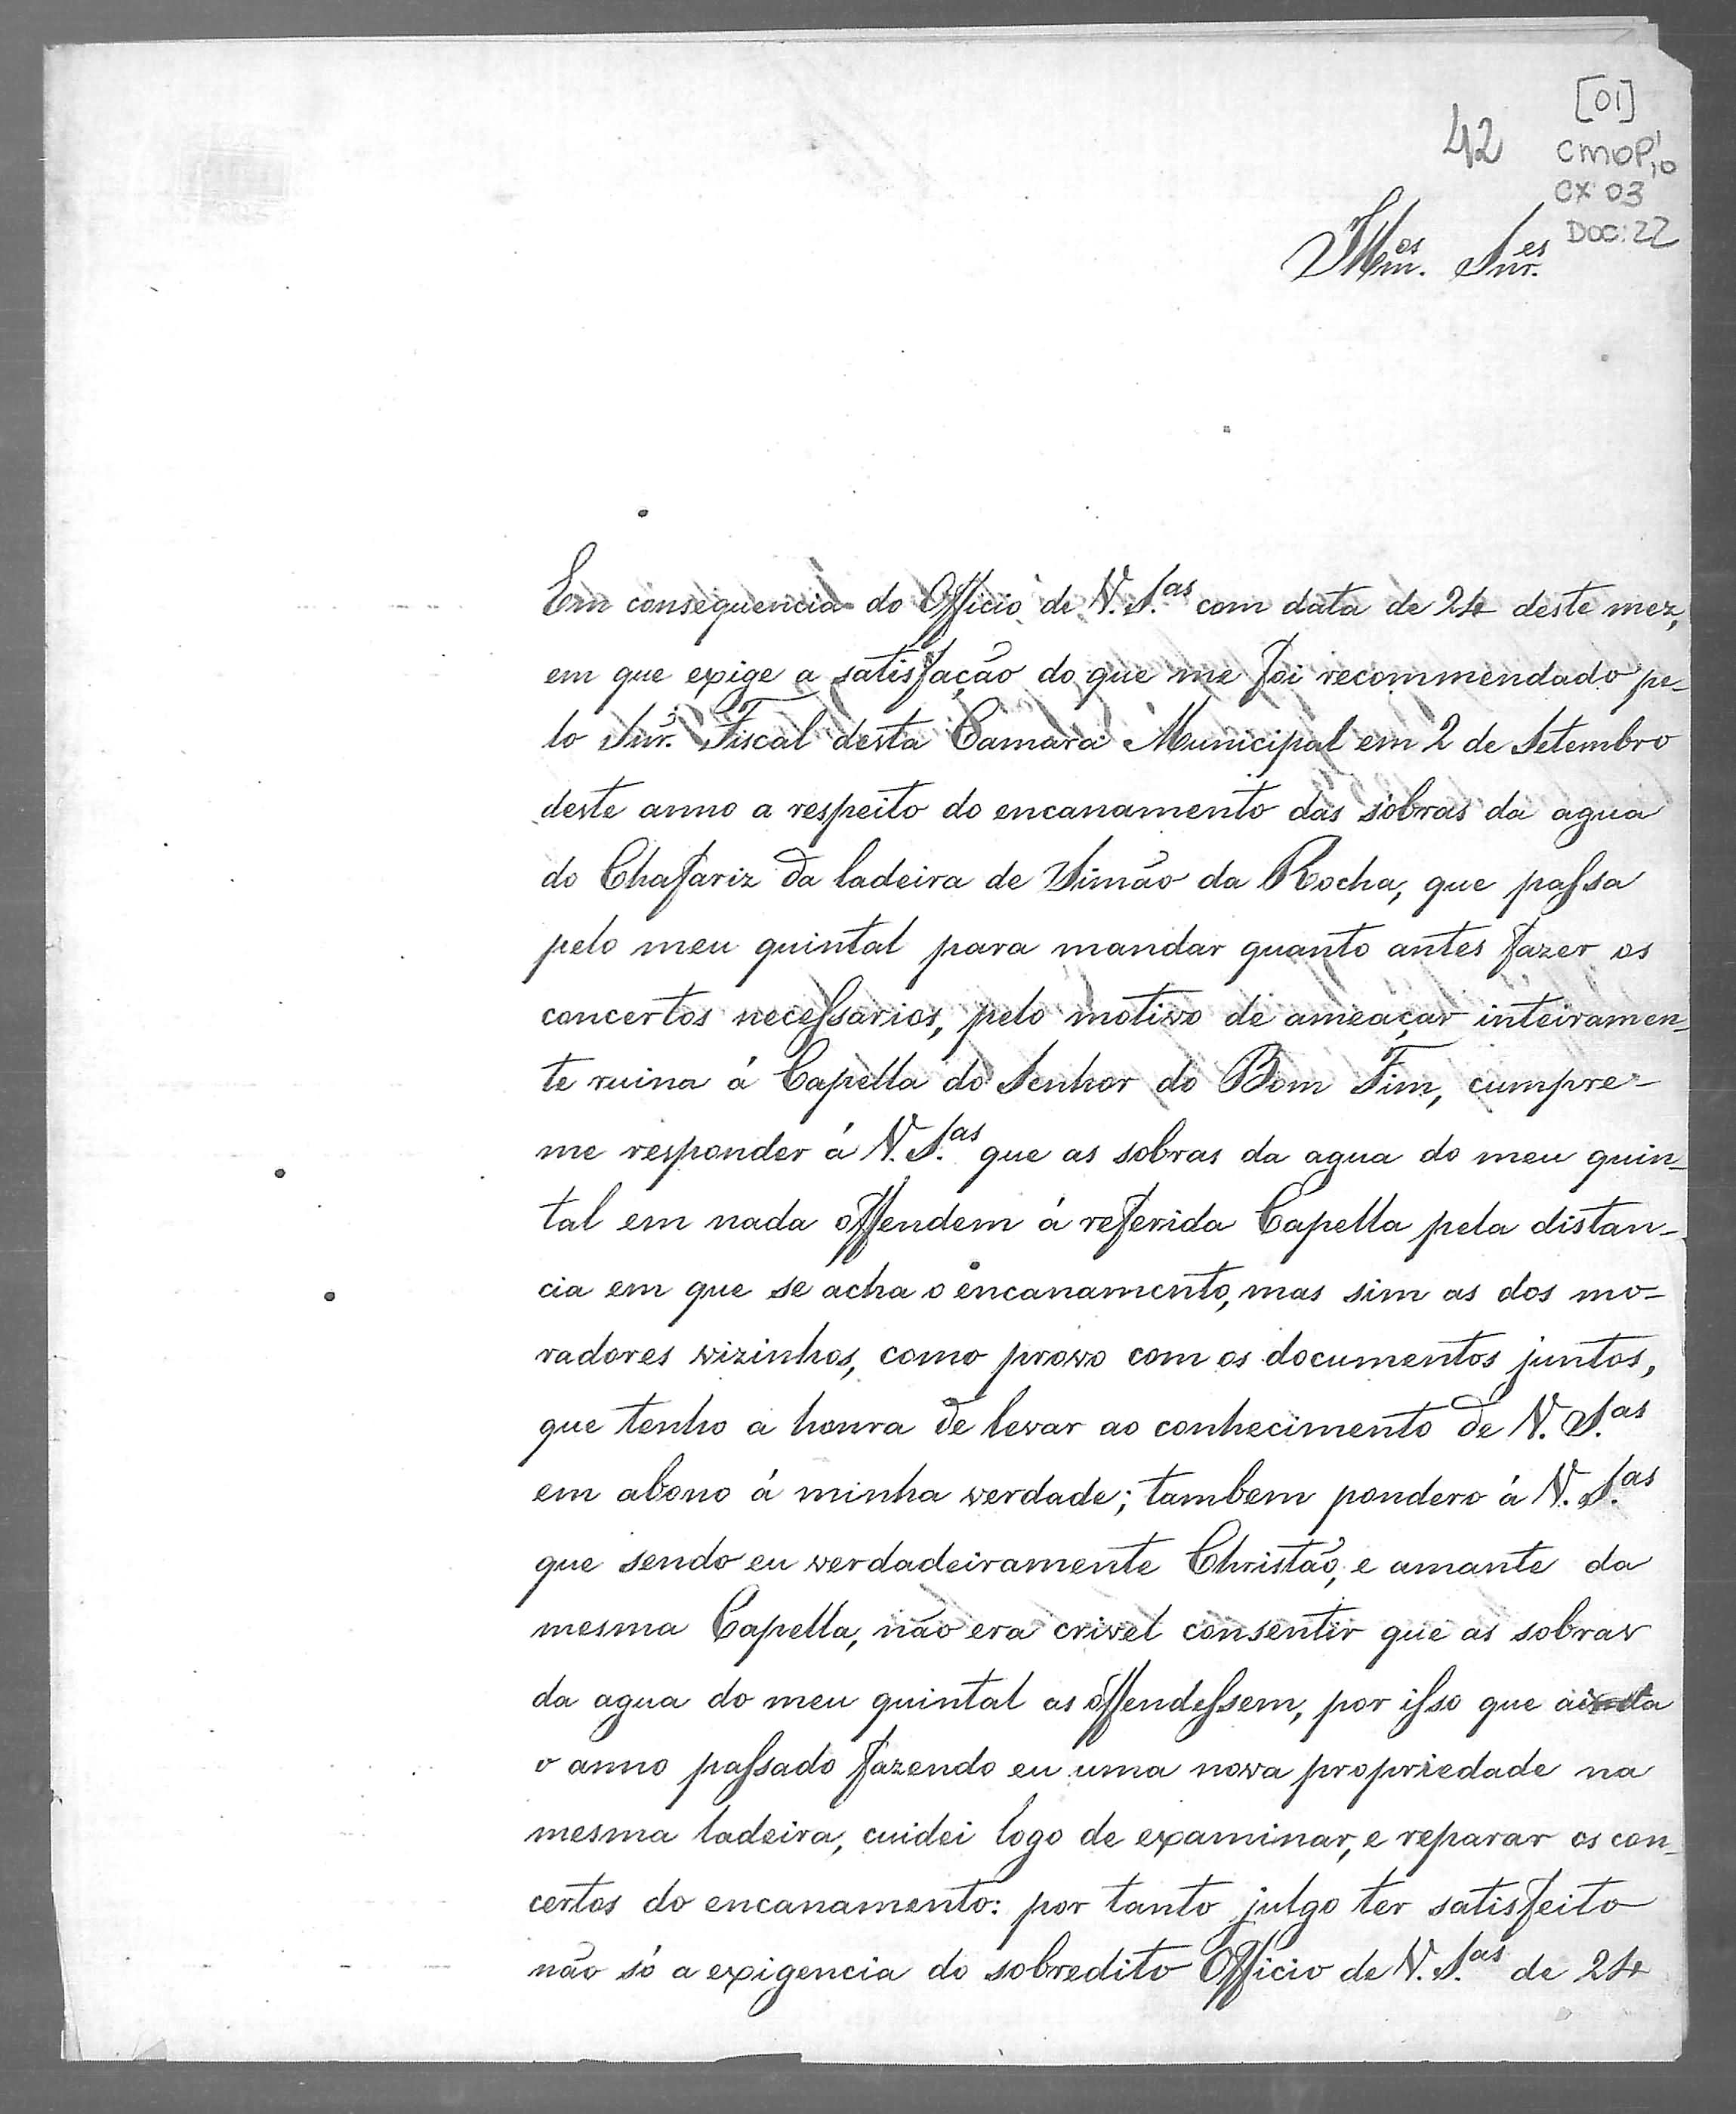 [01]
42 CMOP 1,10
CX 03
DOC: 22
Illm.os Snr.es
Em consequencia do Officio de V. S.as com data de 24 deste mez,
em que exige a satisfação do que me foi recommendado pe-
lo Snr. Fiscal desta Camara Municipal em 2 de Setembro
deste anno a respeito do encanamento das sobras da agua
do Chafariz da ladeira de Simão da Rocha, que passa
pelo meu quintal para mandar quanto antes fazer os
concertos necessarios, pelo motivo de ameaçar inteiramen-
te ruina á Capella do Senhor do Bom Fim, cumpre-
me responder á V. S.as que as sobras da agua do meu quin-
tal em nada offendem á referida Capella pela distan-
cia em que se acha o encanamento, mas sim as dos mo-
radores vizinhos, como provo com os documentos juntos,
que tenho a honra de levar ao conhecimento de V. S.as
em abono á minha verdade; tambem pondero á V. S.as
que sendo eu verdadeiramente Christão, e amante da
mesma Capella, não era crivel consentir que as sobras
da agua do meu quintal as offendessem, por isso que ainda
o anno passado fazendo eu uma nova propriedade na
mesma ladeira, cuidei logo de examinar, e reparar os con-
certos do encanamento: por tanto julgo ter satisfeito
não só a exigencia do sobredito Officio de V. S.as de 24